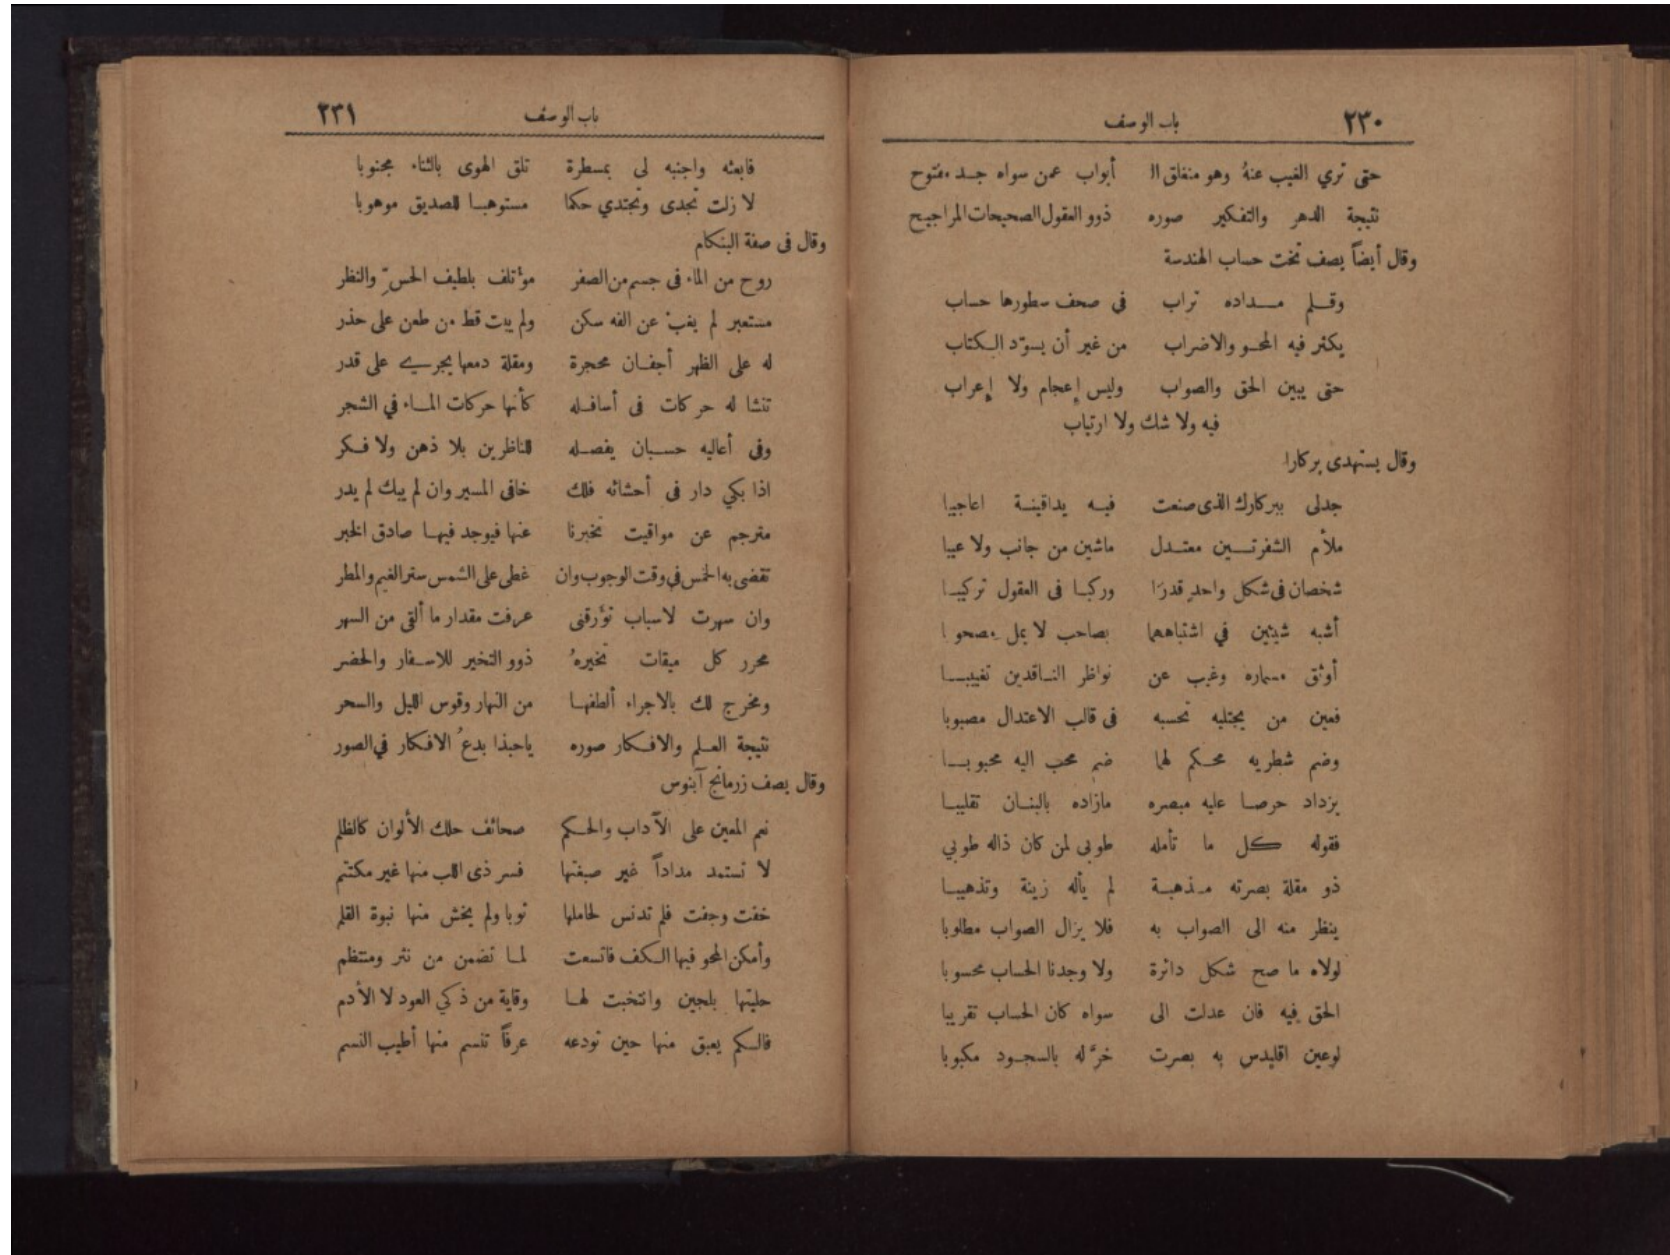 ٢٣٠ باب الوصف
حتى تري الغيب عنهُ وهو منغلق الـ أبواب عمن سواه جد مفتوح
نتيجة الدهر والتفكير صوره ذوو العقول الصحيحات المراجيح
وقال أيضاً يصف تخت حساب الهندسة
وقلم مداده تراب في صحف سطورها حساب
يكثر فيه المحو والاضراب من غير أن يسوّد الكتاب
حتى يبين الحق والصواب وليس إعجام ولا إعراب
فيه ولا شك ولا ارتياب
وقال يستهدى بركارا
جدلى ببركارك الذى صنعت فيه يداقينة اعاجيبا
ملأم الشفرتين معتدل ماشين من جانب ولا عيبا
شخصان فى شكل واحد قدرا وركبا فى العقول تركيبا
أشبه شيئين في اشتباههما بصاحب لا يمل مصحوبا
أوثق مسماره وغيب عن نواظر الناقدين تغييبا
فعين من يجتليه تحسبه فى قالب الاعتدال مصبوبا
وضم شطريه محكم لهما ضم محب اليه محبوبا
يزداد حرصا عليه مبصره مازاده بالبنان تقليبا
فقوله كل ما تأمله طوبى لمن كان ذاله طوبي
ذو مقلة بصرته مذهبة لم يأله زينة وتذهيبا
ينظر منه الى الصواب به فلا يزال الصواب مطلوبا
لولاه ما صح شكل دائرة ولا وجدنا الحساب محسوبا
الحق فيه فان عدلت الى سواه كان الحساب تقريبا
لوعين اقليدس به بصرت خرَّ له بالسجود مكبوبا
باب الوصف ٢٣١
فابعثه واجنبه لى بمسطرة تلق الهوى بالثناء مجنوبا
لا زلت تجدى وتجتدي حكما مستوهبا للصديق موهوبا
وقال فى صفة البنكام
روح من الماء فى جسم من الصفر موٴتلف بلطيف الحسّ والنظر
مستعبر لم يغب عن الفه سكن ولم يبت قط من طعن على حذر
له على الظهر أجفان محجرة ومقلة دمعها يجرى على قدر
تنشا له حركات فى أسافله كأنها حركات الماء في الشجر
وفى أعاليه حسبان يفصله للناظرين بلا ذهن ولا فكر
اذا بكي دار فى أحشائه فلك خافى المسير وان لم يبك لم يدر
مترجم عن مواقيت تخبرنا عنها فيوجد فيها صادق الخبر
تقضى به الخمس في وقت الوجوب وان غطى على الشمس ستر الغيم والمطر
وان سهرت لاسباب تؤرقنى عرفت مقدار ما ألقى من السهر
محرر كل ميقات تخيرهُ ذوو التخير للاسفار والحضر
ومخرج لك بالاجراء ألطفها من النهار وقوس الليل والسحر
نتيجة العلم والافكار صوره ياحبذا بدعُ الافكار في الصور
وقال يصف زرمانج آبنوس
نعم المعين على الآداب والحكم صحائف حلك الألوان كالظلم
لا تستمد مداداً غير صبغتها فسر ذى اللب منها غير مكتتم
خفت وجفت فلم تدنس لحاملها ثوبا ولم يخش منها نبوة القلم
وأمكن المحو فيها الكف فاتسعت لما تضمن من نثر ومنتظم
حليتها بلجين وانتخبت لها وقاية من ذكي العود لا الأدم
فالكم يعبق منها حين تودعه عرفاً تنسم منها أطيب النسم